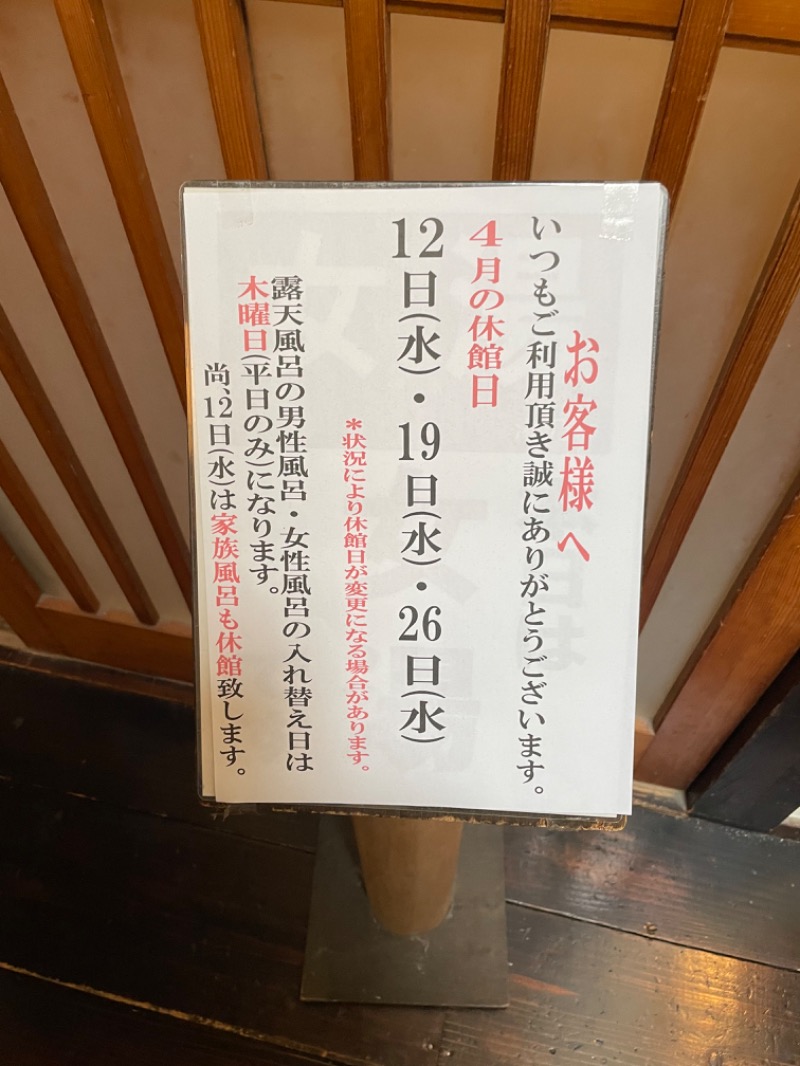 お客様へ
いつもご利用頂き誠にありがとうございます。
４月の休館日
12日(水)・19日(水)・26日(水)
＊状況により休館日が変更になる場合があります。
露天風呂の男性風呂・女性風呂の入れ替え日は
木曜日(平日のみ)になります。
尚、12日(水)は家族風呂も休館致します。